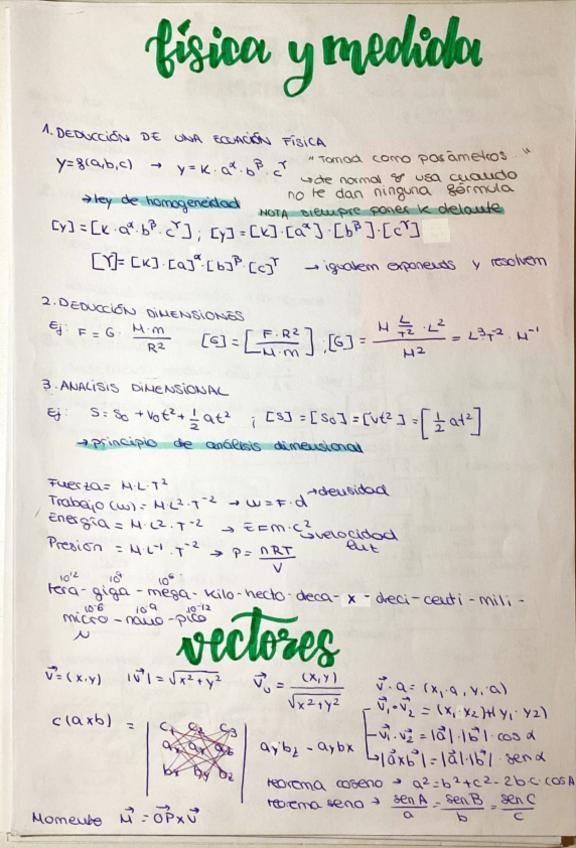 física y medida
1. DEDUCCIÓN DE UNA ECUACIÓN FÍSICA
y=f(a,b,c) → y=K·a^α·b^β·c^γ "Tomad como parámetros.."
↳de normal se usa cuando
no te dan ninguna fórmula
→ley de homogeneidad NOTA siempre poner K delante
[y]=[K·a^α·b^β·c^γ]; [y]=[K]·[a^α]·[b^β]·[c^γ]
[Y]=[K]·[a]^α·[b]^β·[c]^γ → igualem exponents y resolvem
2. DEDUCCIÓN DIMENSIONES
Ej: F=G·M·m/R² [G]=[F·R²/M·m]; [G]=M L/T²·L²/M² = L³T⁻²·M⁻¹
3. ANALISIS DIMENSIONAL
Ej: S=S₀+V₀t²+1/2at² ; [S]=[S₀]=[vt²]=[1/2 at²]
→principio de análisis dimensional
Fuerza= M·L·T²
Trabajo (w)= M·L²·T⁻² → w=F·d →densidad
Energía = M·L²·T⁻² → E=m·c² ↳velocidad
luz
Presión = M·L⁻¹·T⁻² → P=nRT/V
10¹² 10⁹ 10⁶
tera-giga-mega-kilo-hecto-deca-x-deci-centi-mili-
10⁻⁶ 10⁻⁹ 10⁻¹²
micro-nano-pico
μ
vectores
v⃗=(x,y) |v⃗|=√x²+y² v⃗ᵤ=(x,y)/√x²+y² v⃗·a=(x₁·a, y₁·a)
v⃗₁·v⃗₂=(x₁·x₂)+(y₁·y₂)
c(axb) = c₁ c₂ c₃ v⃗₁·v⃗₂=|a⃗|·|b⃗|·cos α
aybz-aybx ↳|a⃗xb⃗|=|a⃗|·|b⃗|·sen α
teorema coseno → a²=b²+c²-2bc·cosA
teorema seno → sen A/a=sen B/b=sen C/c
Momento M⃗=OP⃗xv⃗